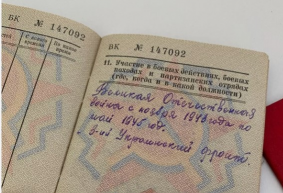 ВК № 147092
С какого времени
По какое время
ВК № 147092
11. Участие в боевых действиях, боевых
походах и партизанских отрядах
(где, когда и в какой должности)
Великая Отечественная
война с ноября 1943 года по
май 1945 год.
Украинский фронт.